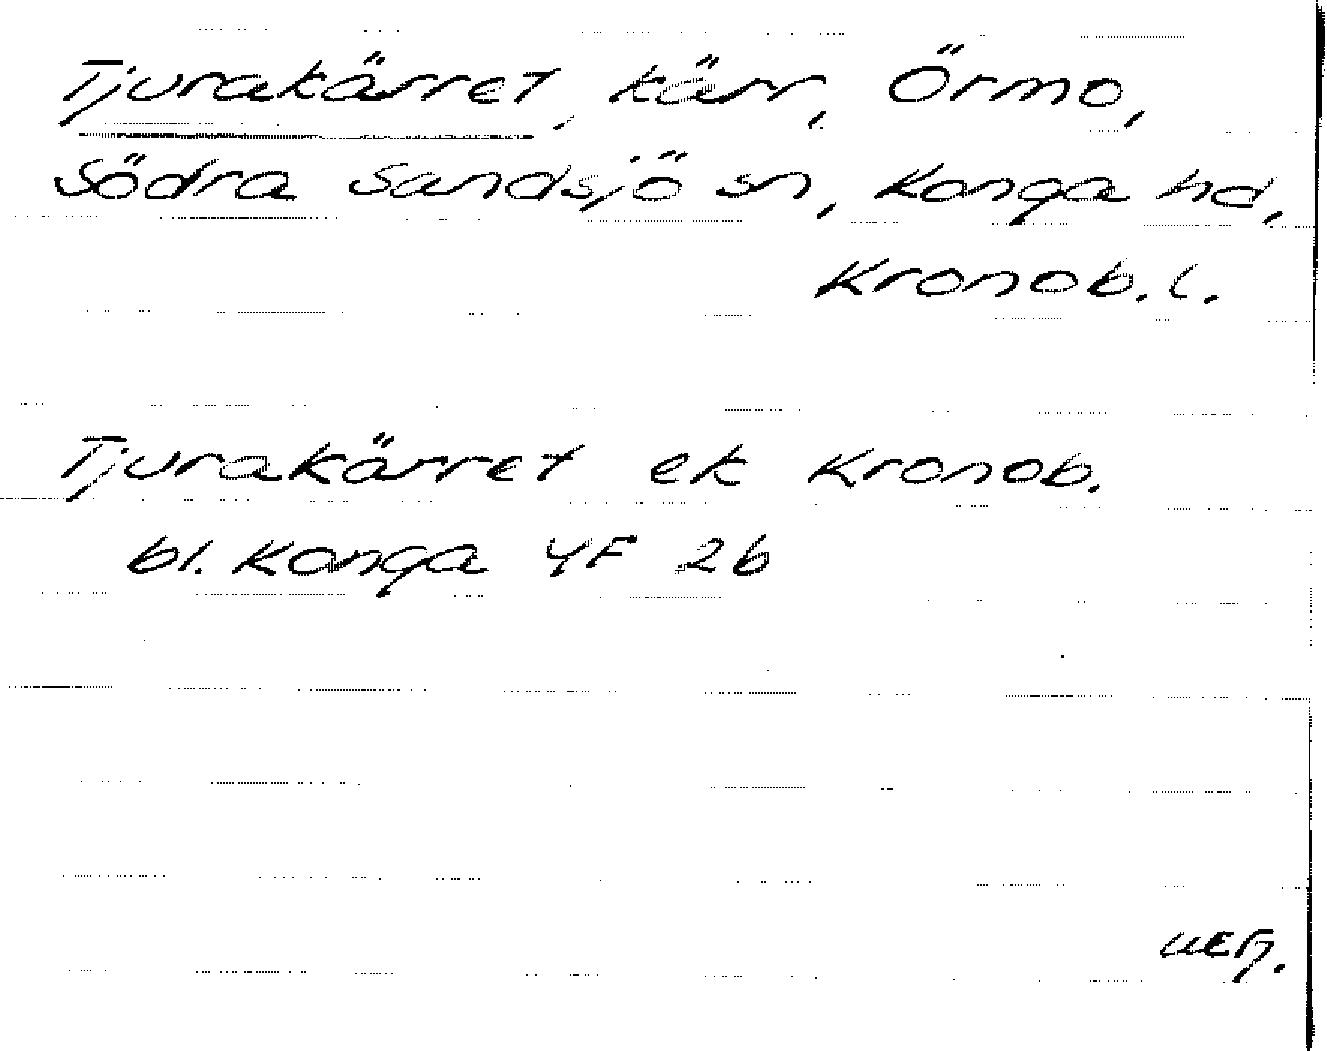 Tjurakärret, kärr, Örmo,
Södra Sandsjö sn, Konga hd,
Kronob. l.
Tjurakärret ek Kronob.
bl. Konga 4F 2b